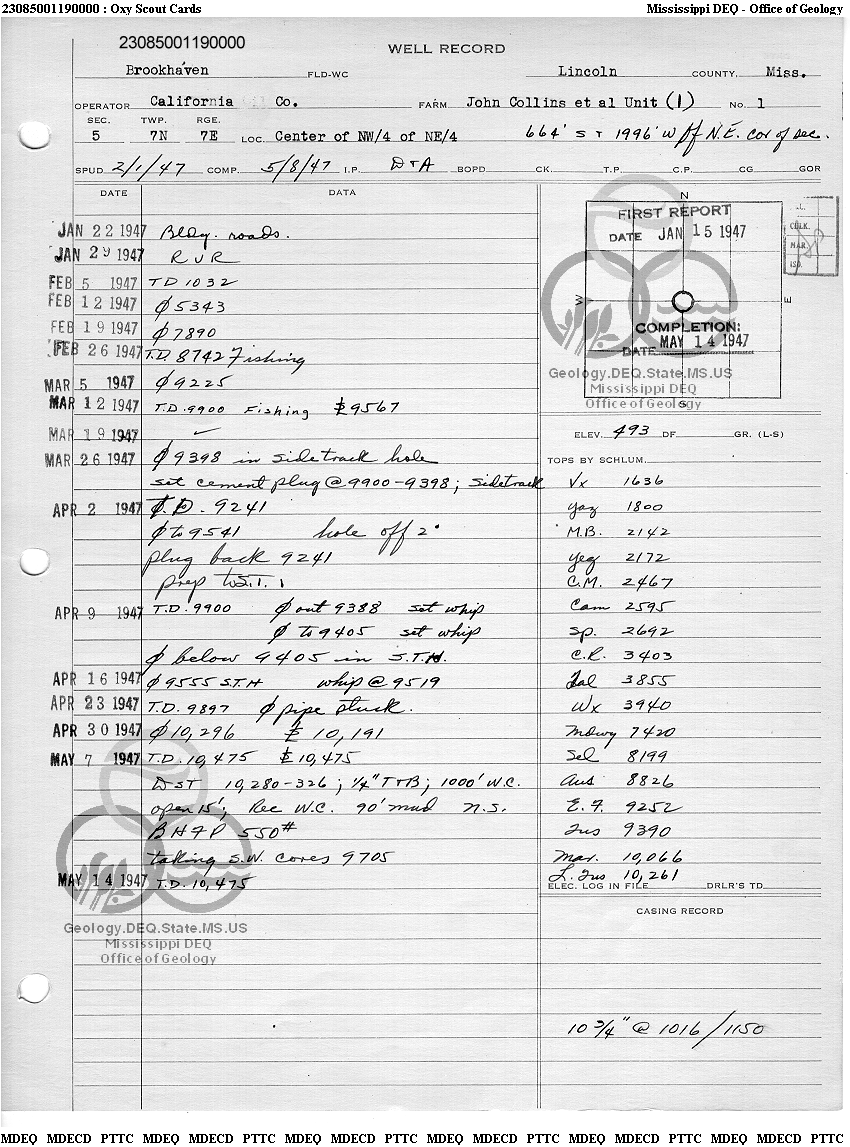 23085001190000 : Oxy Scout Cards Mississippi DEQ - Office of Geology
23085001190000
WELL RECORD
Brookhaven FLD-WC Lincoln COUNTY, Miss.
OPERATOR California Co. FARM John Collins et al Unit (1) No. 1
SEC. TWP. RGE.
5 7N 7E LOC. Center of NW/4 of NE/4 664' S + 1996' W of N.E. cor of sec.
SPUD 2/1/47 COMP. 5/8/47 I.P. D+A BOPD CK. T.P. C.P. CG GOR
DATE DATA
JAN 22 1947 Bldg. roads.
JAN 29 1947 R U R
FEB 5 1947 T D 1032
FEB 12 1947 ϕ 5343
FEB 19 1947 ϕ 7890
FEB 26 1947 T.D. 8742 Fishing
MAR 5 1947 ϕ 9225
MAR 12 1947 T.D. 9900 Fishing E 9567
MAR 19 1947 ✓
MAR 26 1947 ϕ 9398 in sidetrack hole
set cement plug @ 9900-9398; sidetrack
APR 2 1947 T.D. 9241
ϕ to 9541 hole off 2°
plug back 9241
prep to S.T.
APR 9 1947 T.D. 9900 ϕ out 9388 set whip
ϕ to 9405 set whip
ϕ below 9405 in S.T.H.
APR 16 1947 ϕ 9555 S.T.H whip @ 9519
APR 23 1947 T.D. 9897 ϕ pipe stuck.
APR 30 1947 ϕ 10,296 E 10,191
MAY 7 1947 T.D. 10,475 E 10,475
DST 10,280-326; 1/4" T+B; 1000' W.C.
open 15'; Rec W.C. 90' mud N.S.
BHFP 550#
taking S.W. cores 9705
MAY 14 1947 T.D. 10,475
N
FIRST REPORT
DATE JAN 15 1947
W E
COMPLETION:
DATE MAY 14 1947
S
CK.
MAR.
ISO.
Geology.DEQ.State.MS.US
Mississippi DEQ
Office of Geology
ELEV. 493 DF GR. (L-S)
TOPS BY SCHLUM.
Vx 1636
Yaz 1800
M.B. 2142
Yeg 2172
C.M. 2467
Cam 2595
Sp. 2692
C.R. 3403
Sal 3855
Wx 3940
Mdwy 7420
Sel 8199
Aus 8826
E.F. 9252
Tus 9390
Mar. 10,066
L. Tus 10,261
ELEC. LOG IN FILE DRLR'S TD
CASING RECORD
10 3/4" @ 1016/1150
Geology.DEQ.State.MS.US
Mississippi DEQ
Office of Geology
MDEQ MDECD PTTC MDEQ MDECD PTTC MDEQ MDECD PTTC MDEQ MDECD PTTC MDEQ MDECD PTTC MDEQ MDECD PTTC